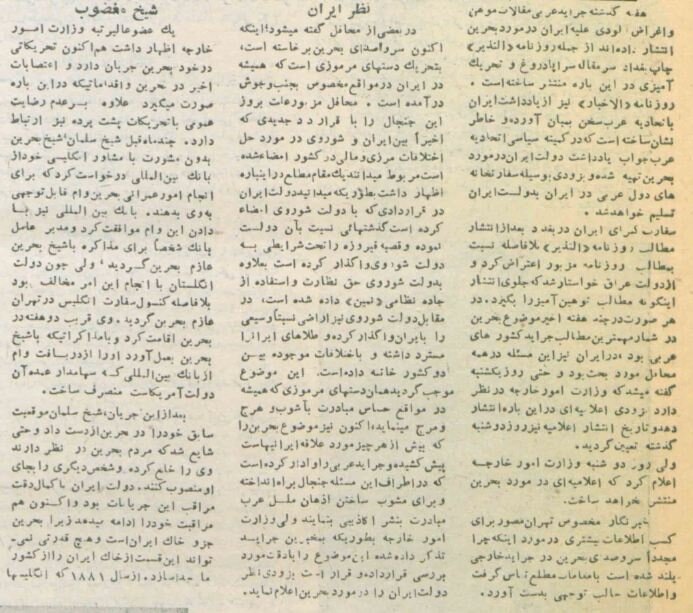 هفته گذشته جراید عربی مقالات موهن
واغراض آلودی علیه ایران در مورد بحرین
انتشار داده‌اند از جمله روزنامه «النذیر»
چاپ بغداد سرمقاله سراپا دروغ و تحریک
آمیزی در این باره منتشر ساخته است .
روزنامه «الاخبار» نیز از یادداشت ایران
باتحادیه عرب سخن بمیان آورده و خاطر
نشان ساخته است که در کمیته سیاسی اتحادیه
عرب جواب یادداشت دولت ایران در مورد
بحرین تهیه شده و بزودی بوسیله سفارتخانه
های دول عربی در ایران بدولت ایران
تسلیم خواهد شد .
سفارت کبرای ایران در بغداد بعد از انتشار
مطالب روزنامه «النذیر» بلافاصله نسبت
بمطالب روزنامه مزبور اعتراض کرد و
از دولت عراق خواستار شد که جلوی انتشار
اینگونه مطالب توهین آمیز را بگیرد. در
هر صورت در چند هفته اخیر موضوع بحرین
در شمار مهمترین مطالب جراید کشور های
عربی بود ، در ایران نیز این مسئله در همه
محافل مورد بحث بود و حتی روز یکشنبه
گفته میشد که وزارت امور خارجه در نظر
دارد بزودی اعلامیه ای در این باره انتشار
دهد و تاریخ انتشار اعلامیه نیز روز دوشنبه
گذشته تعیین گردید.
ولی روز دو شنبه وزارت امور خارجه
اعلام کرد که اعلامیه ای در مورد بحرین
منتشر نخواهد ساخت.
خبرنگار مخصوص تهران مصور برای
کسب اطلاعات بیشتری در مورد اینکه چرا
مجدداً سر و صدای بحرین در جراید خارجی
بلند شده است با مقامات مطلع تماس گرفت
و اطلاعات جالب توجهی بدست آورد.
نظر ایران
در بعضی از محافل گفته میشود: اینکه
اکنون سر و صدای بحرین برخاسته است،
بتحریک دستهای مرموزی است که همیشه
در ایران در مواقع مخصوص بجنب و جوش
در آمده است . محافل مزبور علت بروز
این جنجال را با قرار داد جدیدی که
اخیراً بین ایران و شوروی در مورد حل
اختلافات مرزی و مالی در کشور امضاء شده
است مربوط میدانند یک مقام مطلع در اینباره
اظهار داشت بطوریکه میدانید دولت ایران
در قراردادی که با دولت شوروی امضاء
کرده است گذشتهائی نسبت بآن دولت
نموده و قصبه فیروزه را تحت شرایطی به
دولت شوروی واگذار کرده است بعلاوه
بدولت شوروی حق نظارت و استفاده از
جاده نظامی (نمین) داده شده است، در
مقابل دولت شوروی نیز اراضی نسبتاً وسیعی
را بایران واگذار کرده و طلاهای ایران را
مسترد داشته و باختلافات موجوده بین
دو کشور خاتمه داده است. این موضوع
موجب گردید همان دستهای مرموزی که همیشه
در مواقع حساس مبادرت بآشوب و هرج
و مرج مینمایند، اکنون نیز موضوع بحرین را
که بیش از هر چیز مورد علاقه ایرانیهاست
پیش کشیده و جراید عربی را وادار کرده است
که در اطراف این مسئله جنجال براه انداخته
و برای مشوب ساختن اذهان ملل عرب
مبادرت بنشر اکاذیبی بنمایند ولی وزارت
امور خارجه بطوریکه بمخبرین جراید
تذکر داده شده این موضوع را با دقت مورد
بررسی قرار داده و قرار است بزودی نظر
دولت ایران را در مورد بحرین اعلام نماید.
شیخ مغضوب
یک عضو عالیرتبه وزارت امور
خارجه اظهار داشت هم اکنون تحریکاتی
در خود بحرین جریان دارد و اعتصابات
اخیر در بحرین و اقداماتیکه در این باره
صورت میگیرد علاوه بر عدم رضایت
عمومی با تحریکات پشت پرده نیز ارتباط
دارد. چند ماه قبل شیخ سلمان، شیخ بحرین
بدون مشورت با مشاور انگلیسی خود از
بانک بین‌المللی درخواست کرد که برای
انجام امور عمرانی بحرین وام قابل توجهی
به وی بدهند. بانک بین المللی نیز با
دادن این وام موافقت کرد و مدیر عامل
بانک شخصاً برای مذاکره با شیخ بحرین
عازم بحرین گردید ، ولی چون دولت
انگلستان با انجام این امر مخالف بود
بلافاصله کنسول سفارت انگلیس در تهران
عازم بحرین گردید. وی قریب دو هفته در
بحرین اقامت کرد و با مذاکراتیکه با شیخ
بحرین بعمل آورد او را از دریافت وام
از بانک بین المللی که سهامدار عمده آن
دولت آمریکاست منصرف ساخت.
بعد از این جریان، شیخ سلمان موقعیت
سابق خود را در بحرین از دست داد و حتی
شایع شد که مردم بحرین در نظر دارند
وی را خلع کرده و شخص دیگری را بجای
او منصوب کنند. دولت ایران با کمال دقت
مراقب این جریانات بود و اکنون هم
مراقبت خود را ادامه میدهد زیرا بحرین
جزو خاک ایران است و هیچ قدرتی نمی-
تواند این قسمت از خاک ایران را از کشور
ما جدا سازد. از سال ۱۸۸۱ که انگلیسها